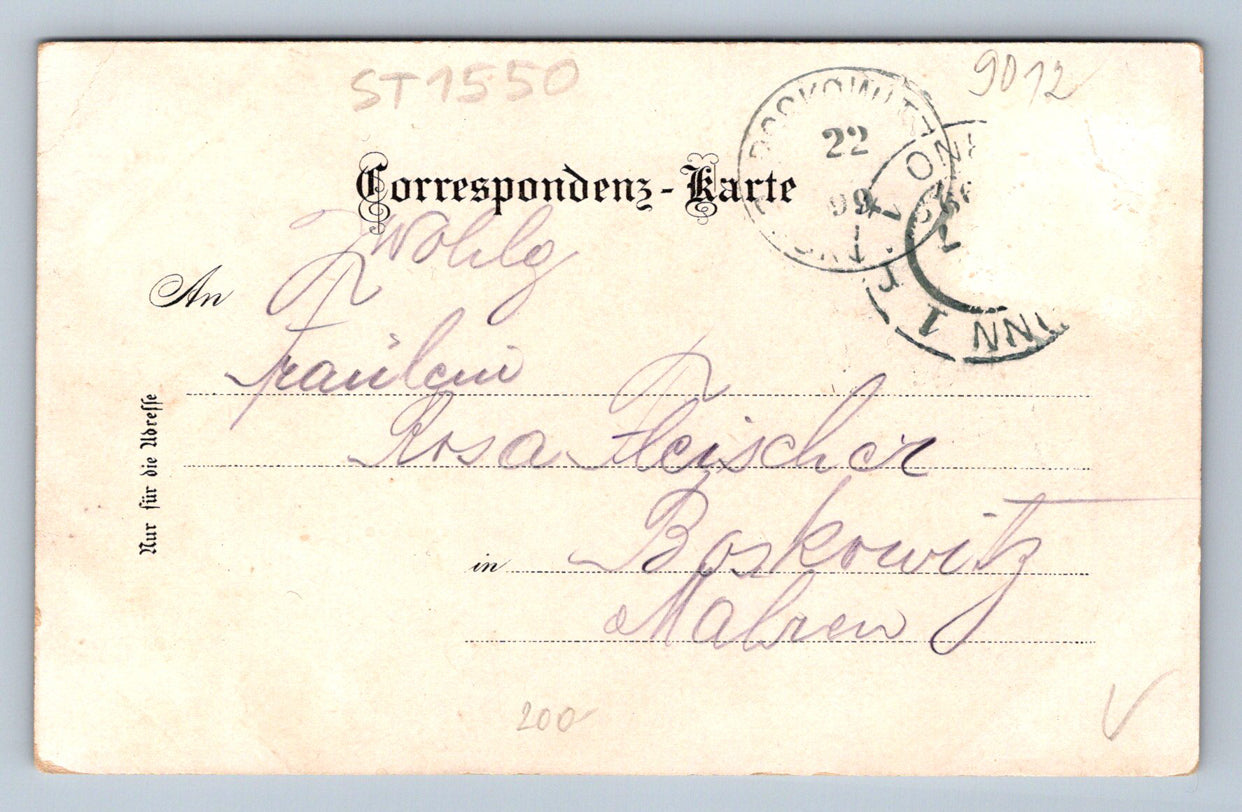 ST1550
9012
BOSKOWITZ
22
99
BRNO
BRÜNN 1
Correspondenz-Karte
Wohlg
An
Fräulein
Rosa Fleischer
in Boskowitz
Mähren
Nur für die Adresse
200